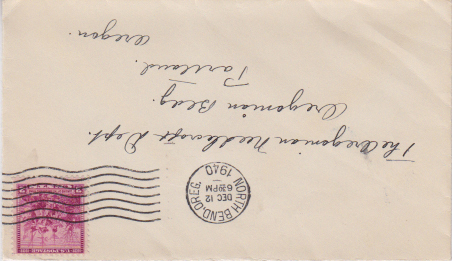 NORTH BEND, OREG.
DEC 12
6:30 PM
1940
U.S. POSTAGE
The Oregonian Needlecraft Dept.
Oregonian Bldg.
Portland.
Oregon.